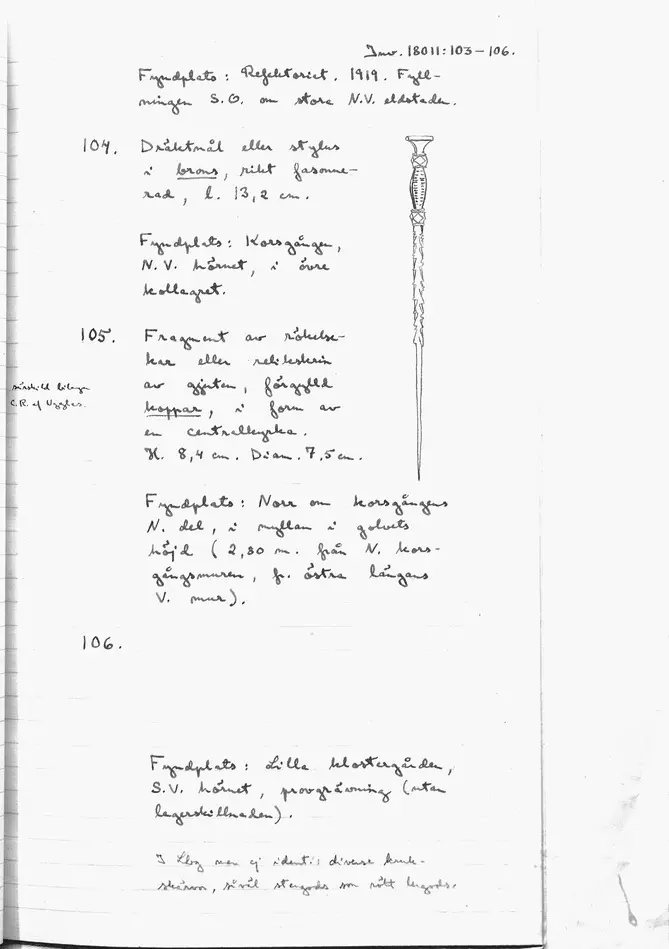 Inv. 18011:103–106.
Fyndplats: Refektoriet. 1919. Fyll-
ningen S.O. om stora N.V. eldstaden.
104. Dräktnål eller stylus
i brons, rikt fasonne-
rad, l. 13,2 cm.
Fyndplats: Korsgången,
N.V. hörnet, i övre
kollagret.
105. Fragment av rökelse-
kar eller relikskrin
av gjuten, förgylld
koppar, i form av
en centralkyrka.
H. 8,4 cm. Diam. 7,5 cm.
särskild bilaga
C.R. af Ugglas.
Fyndplats: Norr om korsgångens
N. del, i myllan i golvets
höjd (2,80 m. från N. kors-
gångsmuren, fr. östra längans
V. mur).
106.
Fyndplats: Lilla klostergården,
S.V. hörnet, provgrävning (utan
lagerskillnaden).
I men ej identi: diverse kruk-
skärvor, såväl stengods som rött lergods.